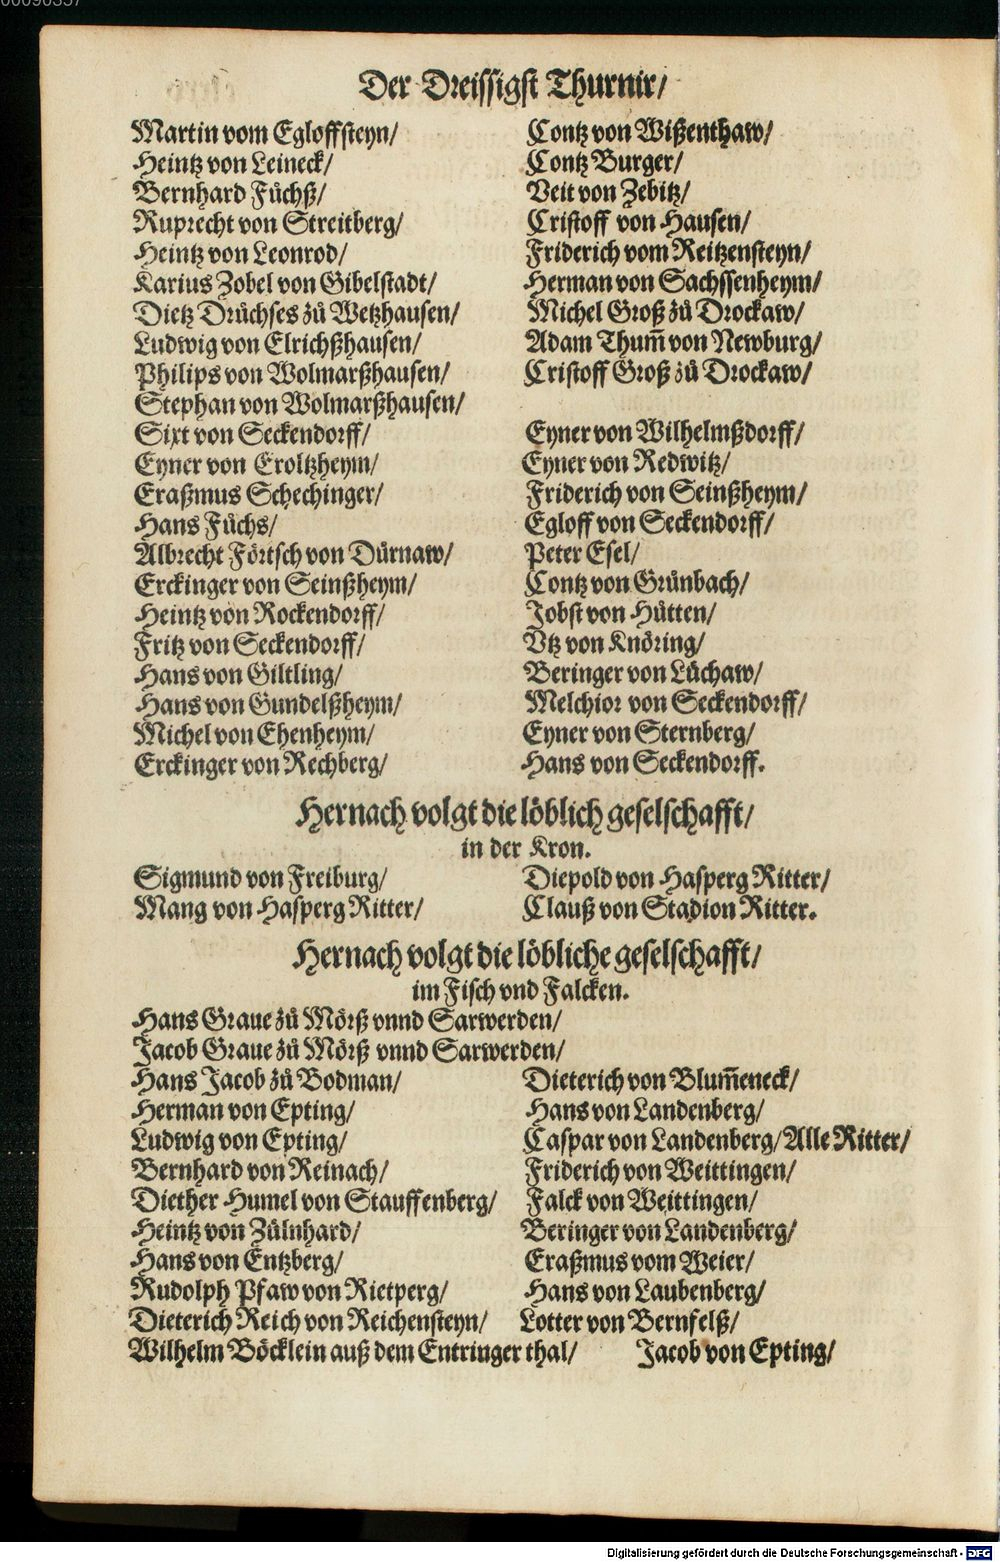 00090357
Der Dreissigst Thurnir/
Martin vom Egloffsteyn/
Heintz von Leineck/
Bernhard Fůchß/
Ruprecht von Streitberg/
Heintz von Leonrod/
Karius Zobel von Gibelstadt/
Dietz Drůchses zů Wetzhausen/
Ludwig von Elrichßhausen/
Philips von Wolmarßhausen/
Stephan von Wolmarßhausen/
Sixt von Seckendorff/
Eyner von Eroltzheym/
Eraßmus Schechinger/
Hans Fůchs/
Albrecht Förtsch von Dürnaw/
Erckinger von Seinßheym/
Heintz von Rockendorff/
Fritz von Seckendorff/
Hans von Giltling/
Hans von Gundelßheym/
Michel von Ehenheym/
Erckinger von Rechberg/
Contz von Wißenthaw/
Contz Burger/
Veit von Zebitz/
Cristoff von Hausen/
Friderich vom Reitzensteyn/
Herman von Sachssenheym/
Michel Groß zů Drockaw/
Adam Thum̃ von Newburg/
Cristoff Groß zů Drockaw/
Eyner von Wilhelmßdorff/
Eyner von Redwitz/
Friderich von Seinßheym/
Egloff von Seckendorff/
Peter Esel/
Contz von Grůnbach/
Jobst von Hůtten/
Vtz von Knöring/
Beringer von Lůchaw/
Melchior von Seckendorff/
Eyner von Sternberg/
Hans von Seckendorff.
Hernach volgt die löblich geselschafft/
in der Kron.
Sigmund von Freiburg/
Mang von Hasperg Ritter/
Diepold von Hasperg Ritter/
Clauß von Stadion Ritter.
Hernach volgt die löbliche geselschafft/
im Fisch vnd Falcken.
Hans Graue zů Mörß vnnd Sarwerden/
Jacob Graue zů Mörß vnnd Sarwerden/
Hans Jacob zů Bodman/
Herman von Epting/
Ludwig von Epting/
Bernhard von Reinach/
Diether Humel von Stauffenberg/
Heintz von Zůlnhard/
Hans von Entzberg/
Rudolph Pfaw von Rietperg/
Dieterich Reich von Reichensteyn/
Wilhelm Böcklein auß dem Entringer thal/
Dieterich von Blum̃eneck/
Hans von Landenberg/
Caspar von Landenberg/ Alle Ritter/
Friderich von Weittingen/
Falck von Weittingen/
Beringer von Landenberg/
Eraßmus vom Weier/
Hans von Laubenberg/
Lotter von Bernfelß/
Jacob von Epting/
Digitalisierung gefördert durch die Deutsche Forschungsgemeinschaft - DFG